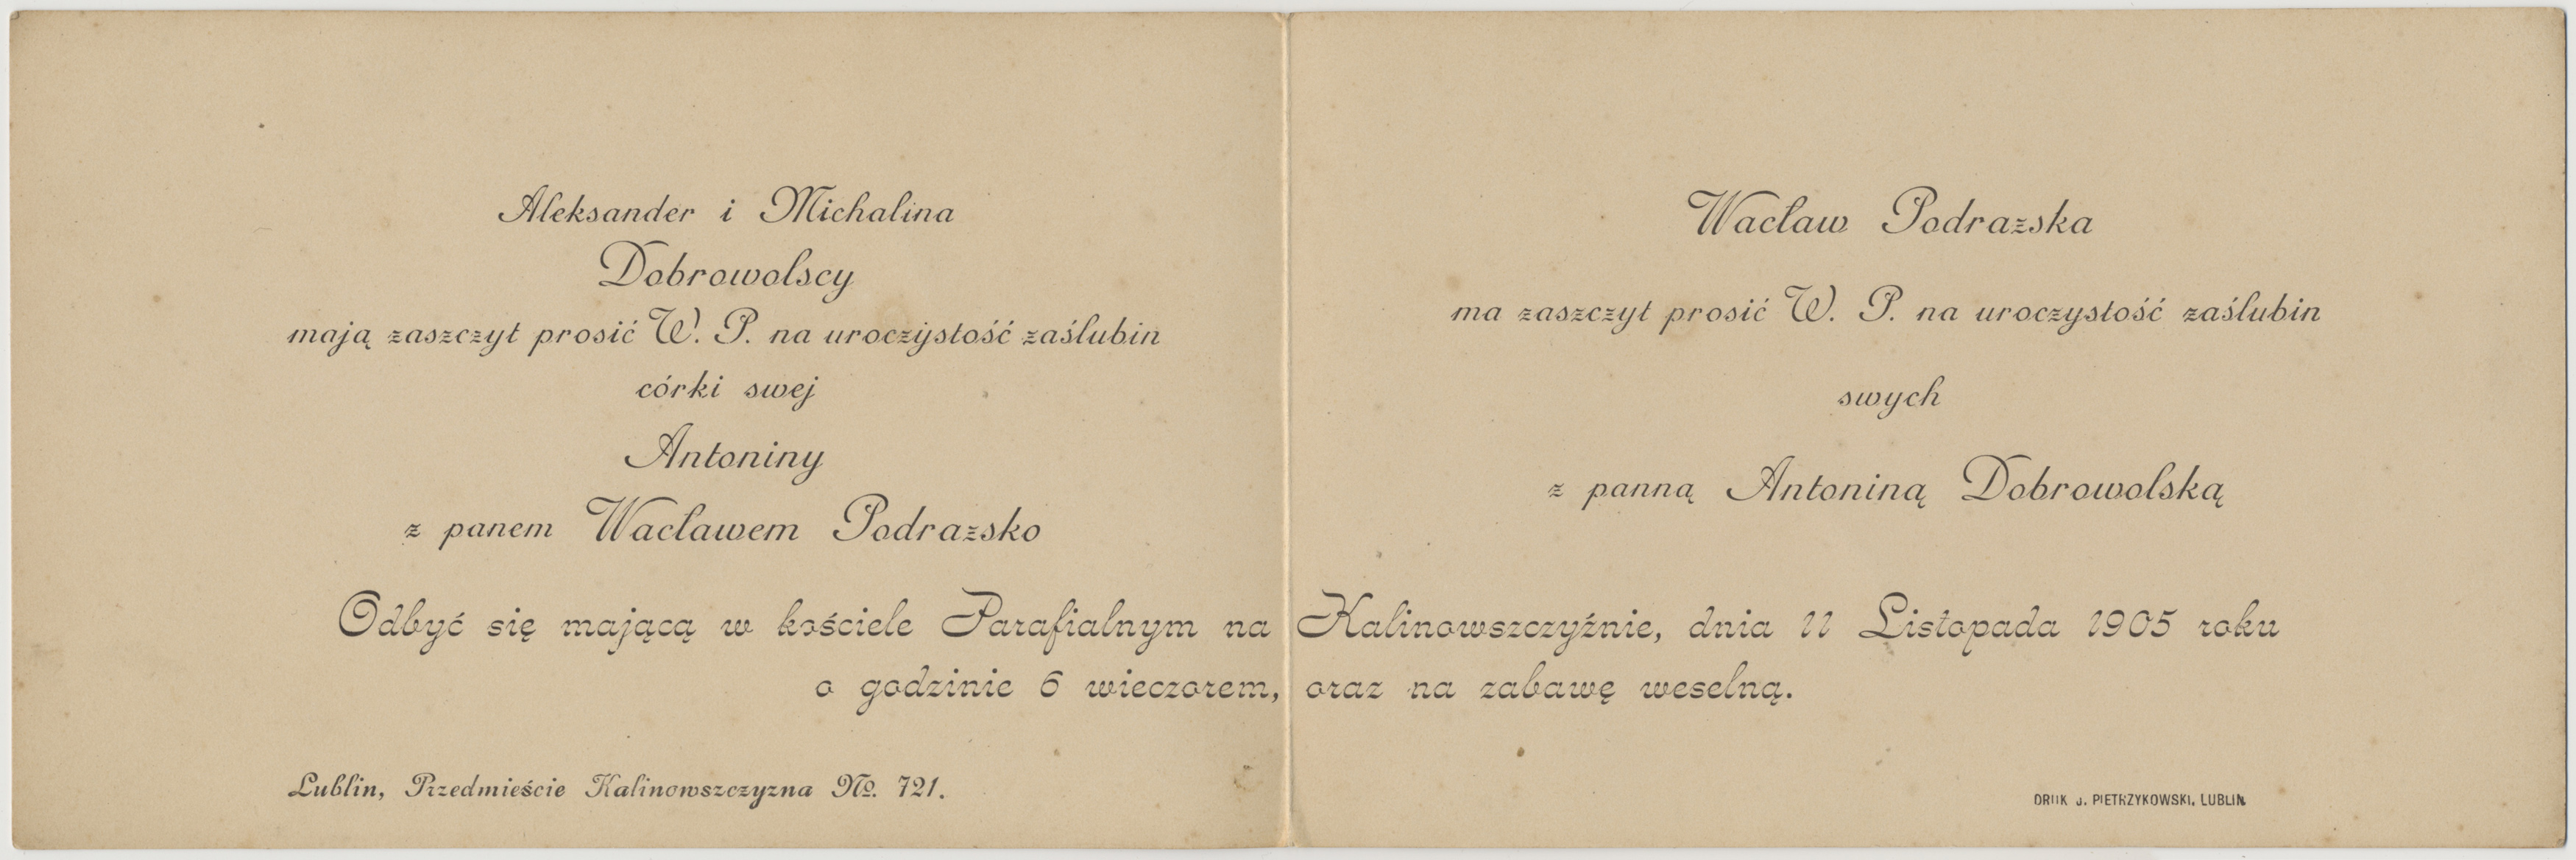 Aleksander i Michalina
Dobrowolscy
mają zaszczyt prosić W. P. na uroczystość zaślubin
córki swej
Antoniny
z panem Wacławem Podrazsko
Wacław Podrazska
ma zaszczyt prosić W. P. na uroczystość zaślubin
swych
z panną Antoniną Dobrowolską
Odbyć się mającą w kościele Parafialnym na Kalinowszczyźnie, dnia 11 Listopada 1905 roku
o godzinie 6 wieczorem, oraz na zabawę weselną.
Lublin, Przedmieście Kalinowszczyzna No. 721.
DRUK J. PIETRZYKOWSKI, LUBLIN